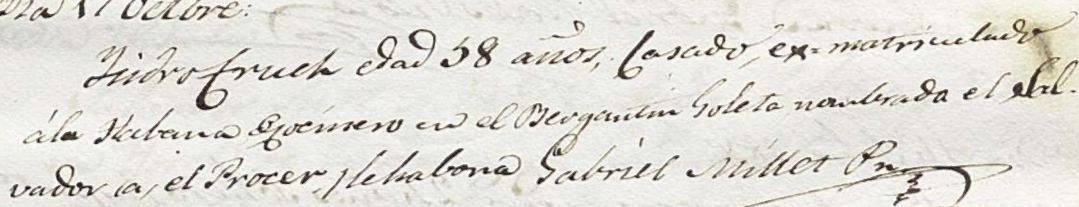 Dia 17 Octbre:
Ysidro Cruch edad 58 años, Casado, ex=matriculado
á la Habana en el Bergantin Goleta nombrada el Sal-
vador (a) el Procer, y le abona Gabriel Millet Pn